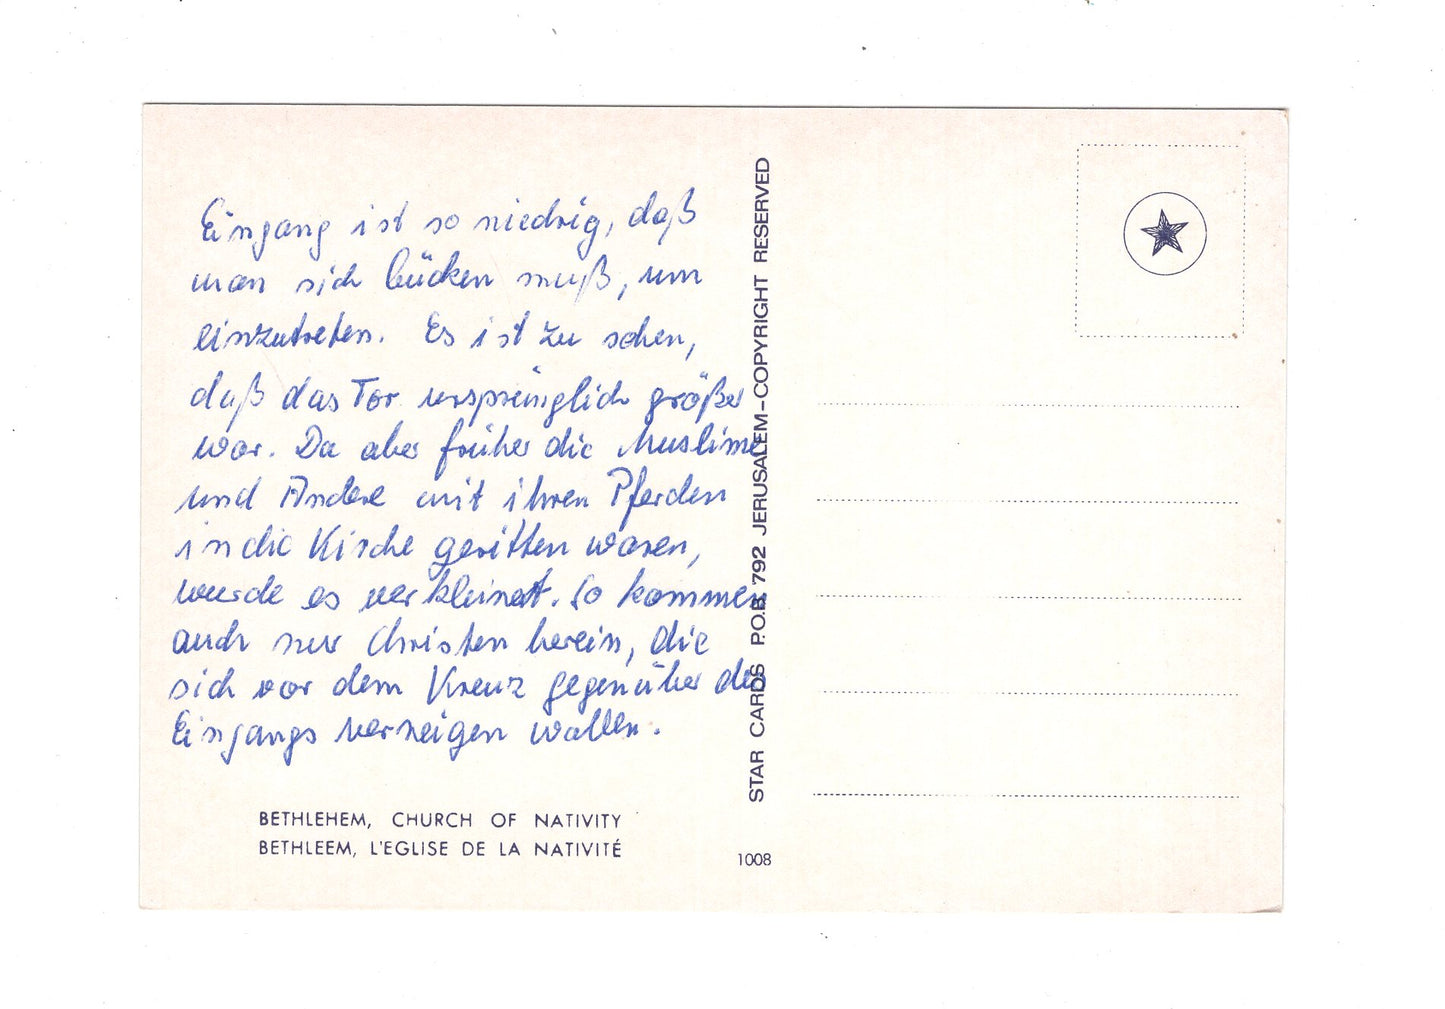 Eingang ist so niedrig, daß
man sich bücken muß, um
einzutreten. Es ist zu sehen,
daß das Tor ursprünglich größer
war. Da aber früher die Muslime
und Andere mit ihren Pferden
in die Kirche geritten waren,
wurde es verkleinert. So kommen
auch nur Christen herein, die
sich vor dem Kreuz gegenüber des
Eingangs verneigen wollen.
BETHLEHEM, CHURCH OF NATIVITY
BETHLEEM, L'EGLISE DE LA NATIVITÉ
STAR CARDS P.O.B. 792 JERUSALEM-COPYRIGHT RESERVED
1008